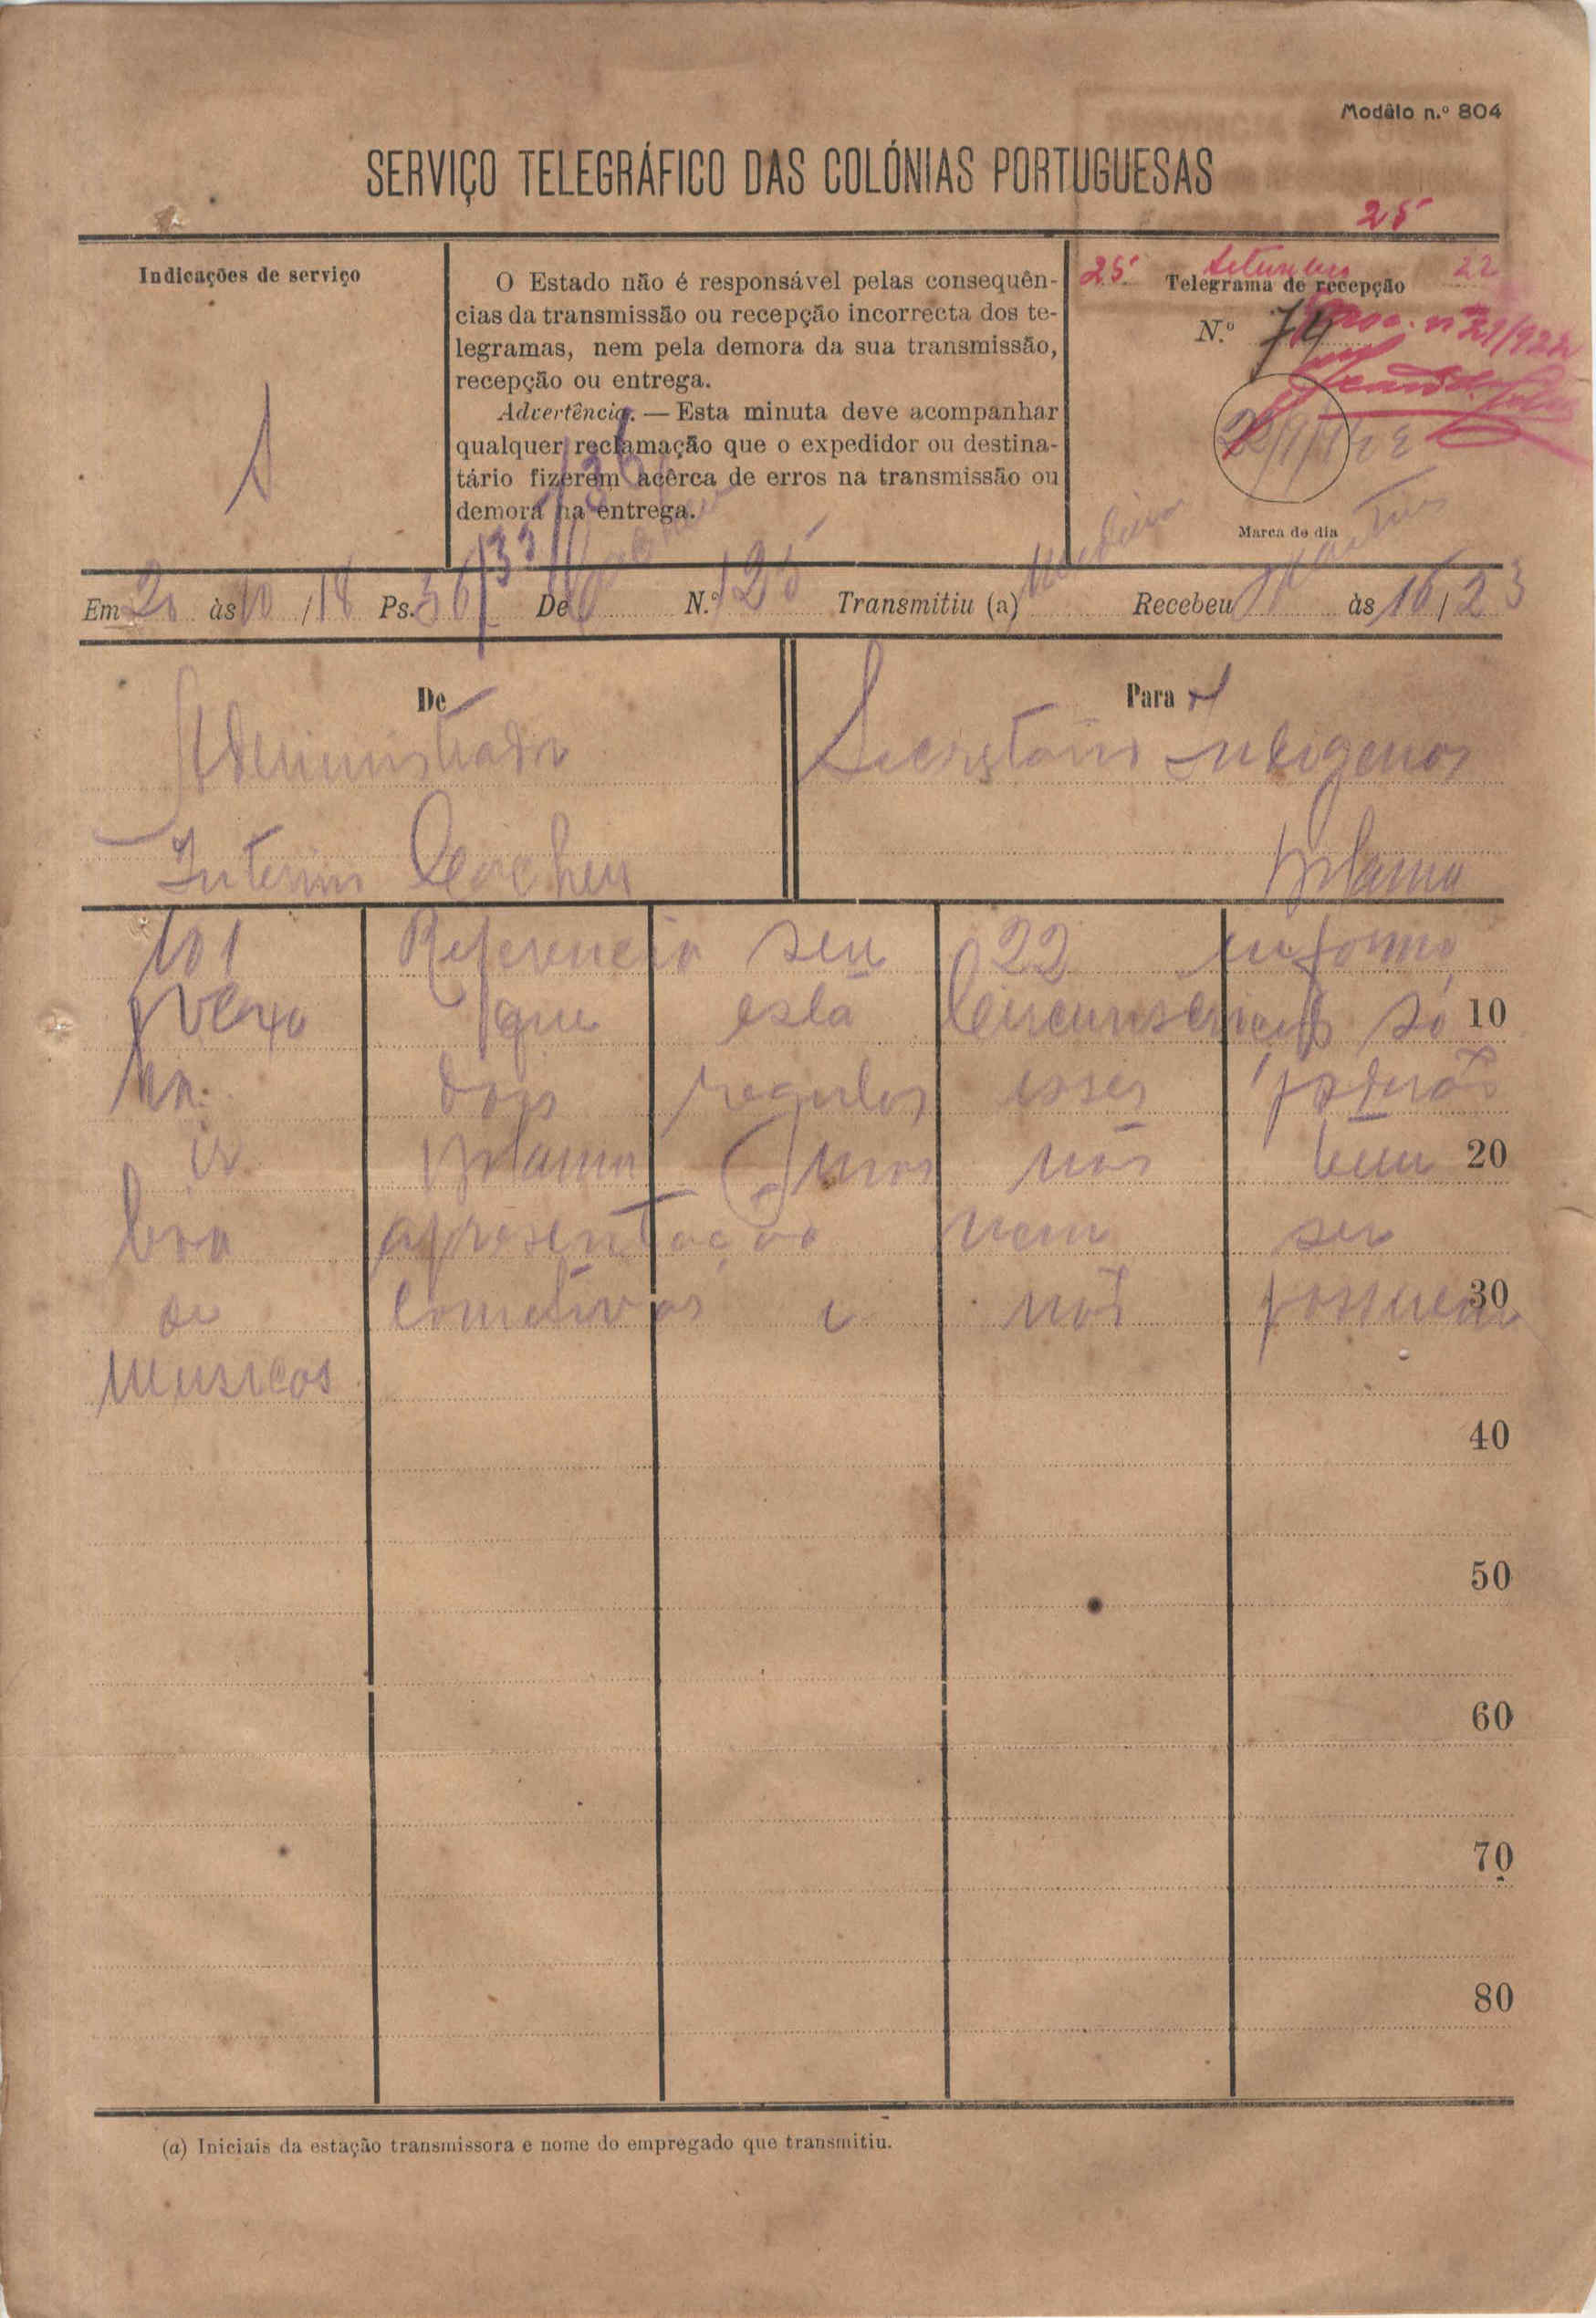 Modêlo n.º 804
SERVIÇO TELEGRÁFICO DAS COLÓNIAS PORTUGUESAS
25
Indicações de serviço
O Estado não é responsável pelas consequên-
cias da transmissão ou recepção incorrecta dos te-
legramas, nem pela demora da sua transmissão,
recepção ou entrega.
Advertência. — Esta minuta deve acompanhar
qualquer reclamação que o expedidor ou destina-
tário fizerem acêrca de erros na transmissão ou
demora na entrega.
25 Setembro 22
Telegrama de recepção
N.º 74
Marca do dia
Em às 10 / 18 Ps. 36 De N.º 125 Transmitiu (a) Recebeu às 16 / 23
De
Administrador
Interino Cacheu
Para
Secretario indigenas
Bolama
101 Referencia seu 22 informo
que esta Circunscrição só 10
dois regulos esses poderão
ir Bolama mas não teem 20
boa apresentação nem ser
de comitivas e não possuem 30
musicos
40
50
60
70
80
(a) Iniciais da estação transmissora e nome do empregado que transmitiu.